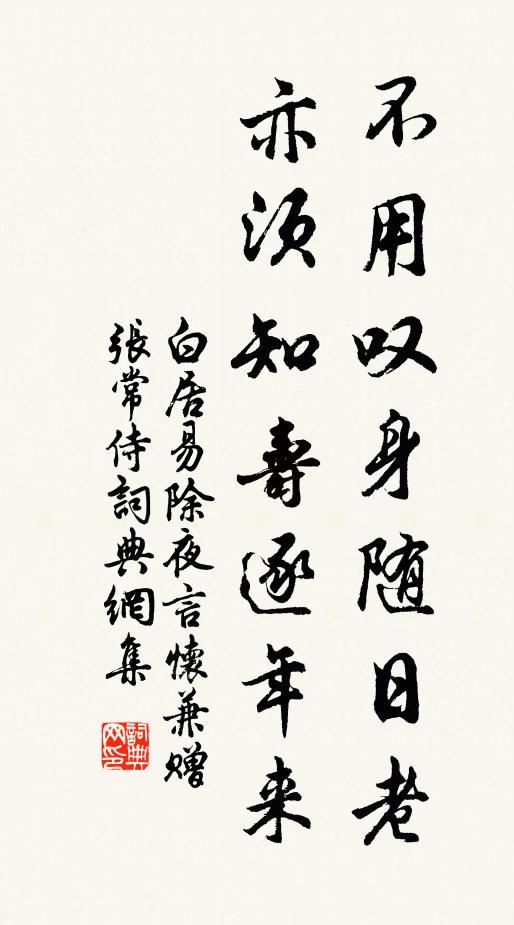 不用叹身随日老
亦须知寿逐年来
白居易除夜言懷兼赠
張常侍詞典網集
詞典网印